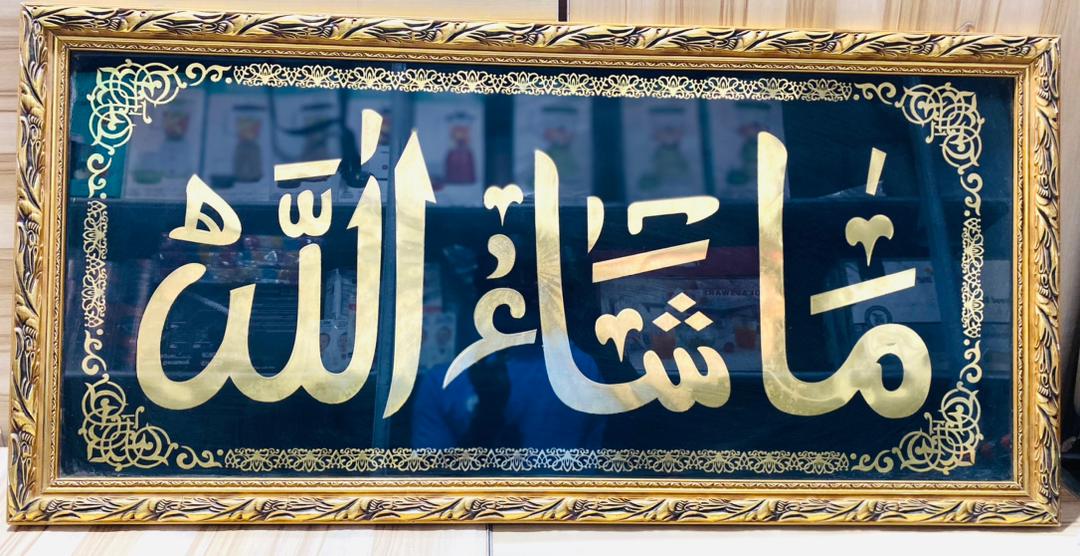 مَا شَاءُ اللَّه